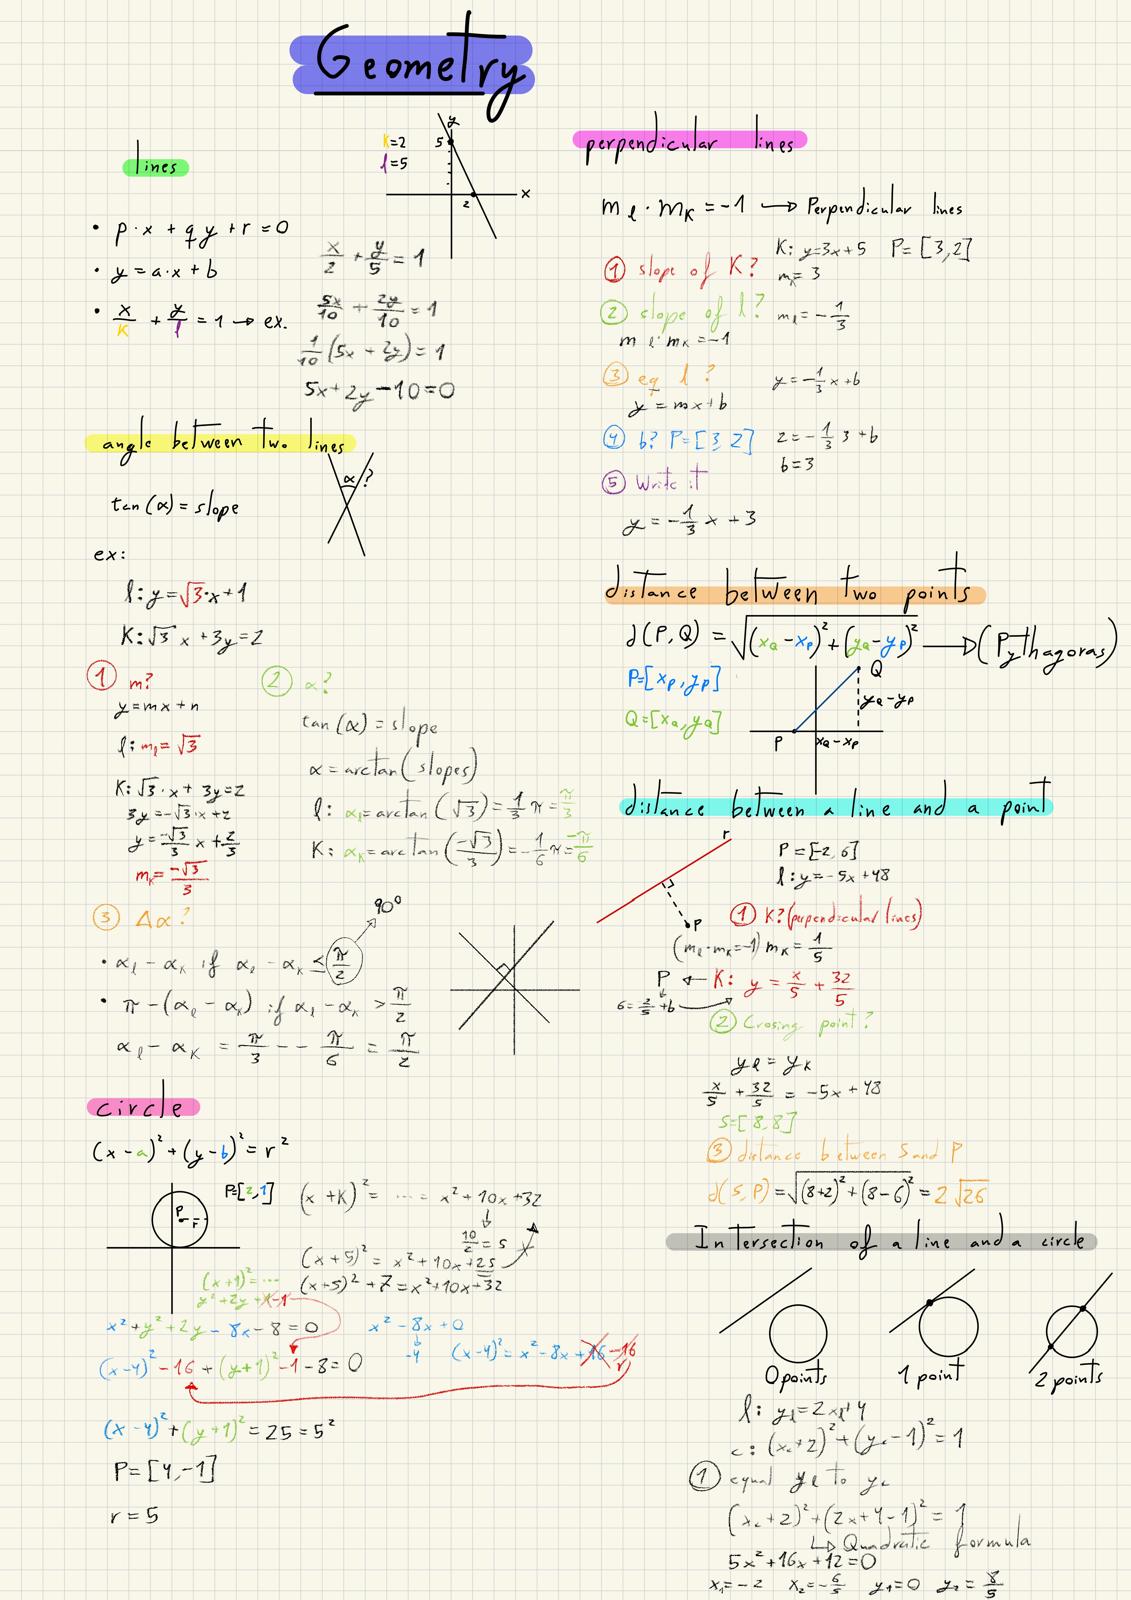 Geometry
lines
K=2
l=5
y
5
x
2
• p·x + qy + r = 0
• y = a·x + b
• x/K + y/l = 1 → ex.
x/2 + y/5 = 1
5x/10 + 2y/10 = 1
1/10 (5x + 2y) = 1
5x + 2y - 10 = 0
angle between two lines
α?
tan(α) = slope
ex:
l: y = √3·x + 1
K: √3 x + 3y = 2
① m?
y = mx + n
l: mₗ = √3
K: √3·x + 3y = 2
3y = -√3·x + 2
y = -√3/3 x + 2/3
mₖ = -√3/3
② α?
tan(α) = slope
α = arctan(slopes)
l: αₗ = arctan(√3) = 1/3 π = π/3
K: αₖ = arctan(-√3/3) = -1/6 π = -π/6
③ Δα?
90°
• αₗ - αₖ if αₗ - αₖ ≤ π/2
• π - (αₗ - αₖ) if αₗ - αₖ > π/2
αₗ - αₖ = π/3 - - π/6 = π/2
circle
(x - a)² + (y - b)² = r²
P=[2,1]
P
r
(x + K)² = ... = x² + 10x + 32
10/2 = 5
(x + 5)² = x² + 10x + 25
(x+5)² + 7 = x² + 10x + 32
(x + 1)² = ...
y² + 2y + 1 - 1
x² + y² + 2y - 8x - 8 = 0
x² - 8x + 0
-4
(x-4)² = x² - 8x + 16 - 16
(x-4)² - 16 + (y+1)² - 1 - 8 = 0
(x-4)² + (y+1)² = 25 = 5²
P = [4, -1]
r = 5
perpendicular lines
mₗ · mₖ = -1 → Perpendicular lines
K: y = 3x + 5 P = [3,2]
① slope of K? mₖ = 3
② slope of l? mₗ = -1/3
mₗ · mₖ = -1
③ eq l? y = -1/3 x + b
y = mx + b
④ b? P = [3 2] 2 = -1/3 3 + b
b = 3
⑤ Write it
y = -1/3 x + 3
distance between two points
d(P, Q) = √((x_Q - x_P)² + (y_Q - y_P)²) → (Pythagoras)
P=[x_P, y_P]
Q=[x_Q, y_Q]
Q
y_Q - y_P
P
x_Q - x_P
distance between a line and a point
r
P
P = [-2, 6]
l: y = -5x + 48
① K? (perpendicular lines)
(mₗ·mₖ = -1) mₖ = 1/5
P ← K: y = x/5 + 32/5
6 = 2/5 + b
② Crosing point?
yₗ = yₖ
x/5 + 32/5 = -5x + 48
S=[8,8]
③ distance between S and P
d(S, P) = √((8+2)² + (8-6)²) = 2√26
Intersection of a line and a circle
0 points
1 point
2 points
l: yₗ = 2xₗ + 4
c: (x_c + 2)² + (y_c - 1)² = 1
① equal yₗ to y_c
(x_c + 2)² + (2x + 4 - 1)² = 1
↳ Quadratic formula
5x² + 16x + 12 = 0
x₁ = -2 x₂ = -6/5 y₁ = 0 y₂ = 8/5